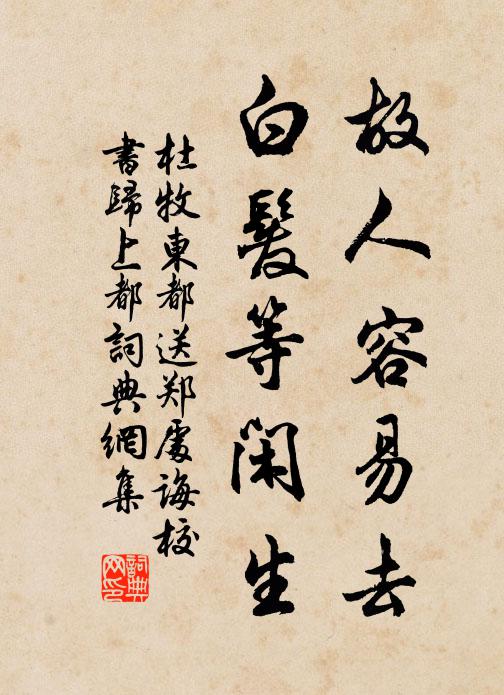 故人容易去
白髮等閑生
杜牧東都送郑處誨校
書歸上都詞典網集
詞典网印